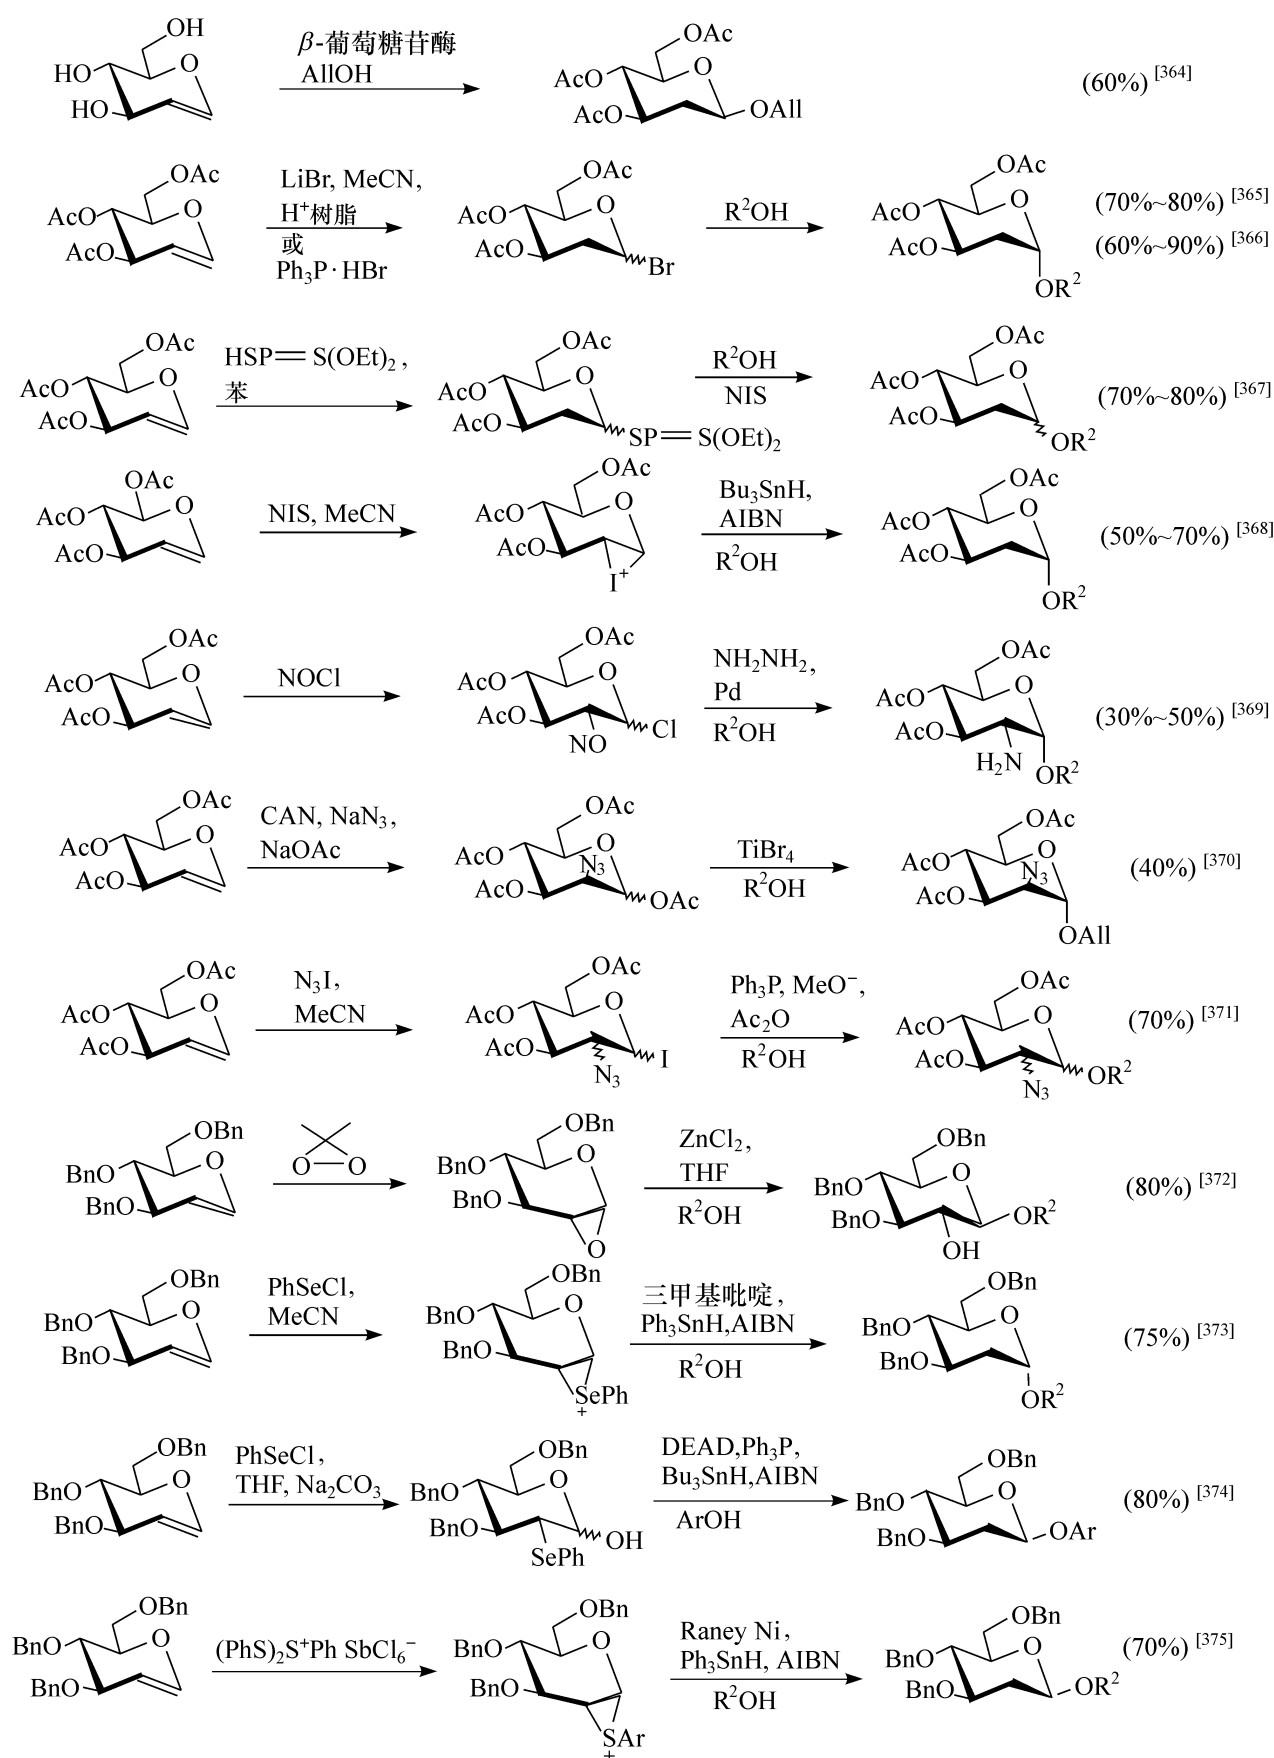 OH
HO
O
HO
β-葡萄糖苷酶
AllOH
OAc
AcO
O
AcO
OAll
(60%) [364]
OAc
AcO
O
AcO
LiBr, MeCN,
H⁺树脂
或
Ph₃P·HBr
OAc
AcO
O
AcO
Br
R²OH
OAc
AcO
O
AcO
OR²
(70%~80%) [365]
(60%~90%) [366]
OAc
AcO
O
AcO
HSP═S(OEt)₂,
苯
OAc
AcO
O
AcO
SP═S(OEt)₂
R²OH
NIS
OAc
AcO
O
AcO
OR²
(70%~80%) [367]
OAc
AcO
O
AcO
NIS, MeCN
OAc
AcO
O
AcO
I⁺
Bu₃SnH,
AIBN
R²OH
OAc
AcO
O
AcO
OR²
(50%~70%) [368]
OAc
AcO
O
AcO
NOCl
OAc
AcO
O
AcO
NO
Cl
NH₂NH₂,
Pd
R²OH
OAc
AcO
O
AcO
H₂N
OR²
(30%~50%) [369]
OAc
AcO
O
AcO
CAN, NaN₃,
NaOAc
OAc
AcO
O
N₃
AcO
OAc
TiBr₄
R²OH
OAc
AcO
O
N₃
AcO
OAll
(40%) [370]
OAc
AcO
O
AcO
N₃I,
MeCN
OAc
AcO
O
AcO
N₃
I
Ph₃P, MeO⁻,
Ac₂O
R²OH
OAc
AcO
O
AcO
N₃
OR²
(70%) [371]
OBn
BnO
O
BnO
O O
OBn
BnO
O
BnO
O
ZnCl₂,
THF
R²OH
OBn
BnO
O
BnO
OH
OR²
(80%) [372]
OBn
BnO
O
BnO
PhSeCl,
MeCN
OBn
BnO
O
BnO
SePh
+
三甲基吡啶,
Ph₃SnH,AIBN
R²OH
OBn
BnO
O
BnO
OR²
(75%) [373]
OBn
BnO
O
BnO
PhSeCl,
THF, Na₂CO₃
OBn
BnO
O
BnO
SePh
OH
DEAD,Ph₃P,
Bu₃SnH,AIBN
ArOH
OBn
BnO
O
BnO
OAr
(80%) [374]
OBn
BnO
O
BnO
(PhS)₂S⁺Ph SbCl₆⁻
OBn
BnO
O
BnO
SAr
+
Raney Ni,
Ph₃SnH, AIBN
R²OH
OBn
BnO
O
BnO
OR²
(70%) [375]